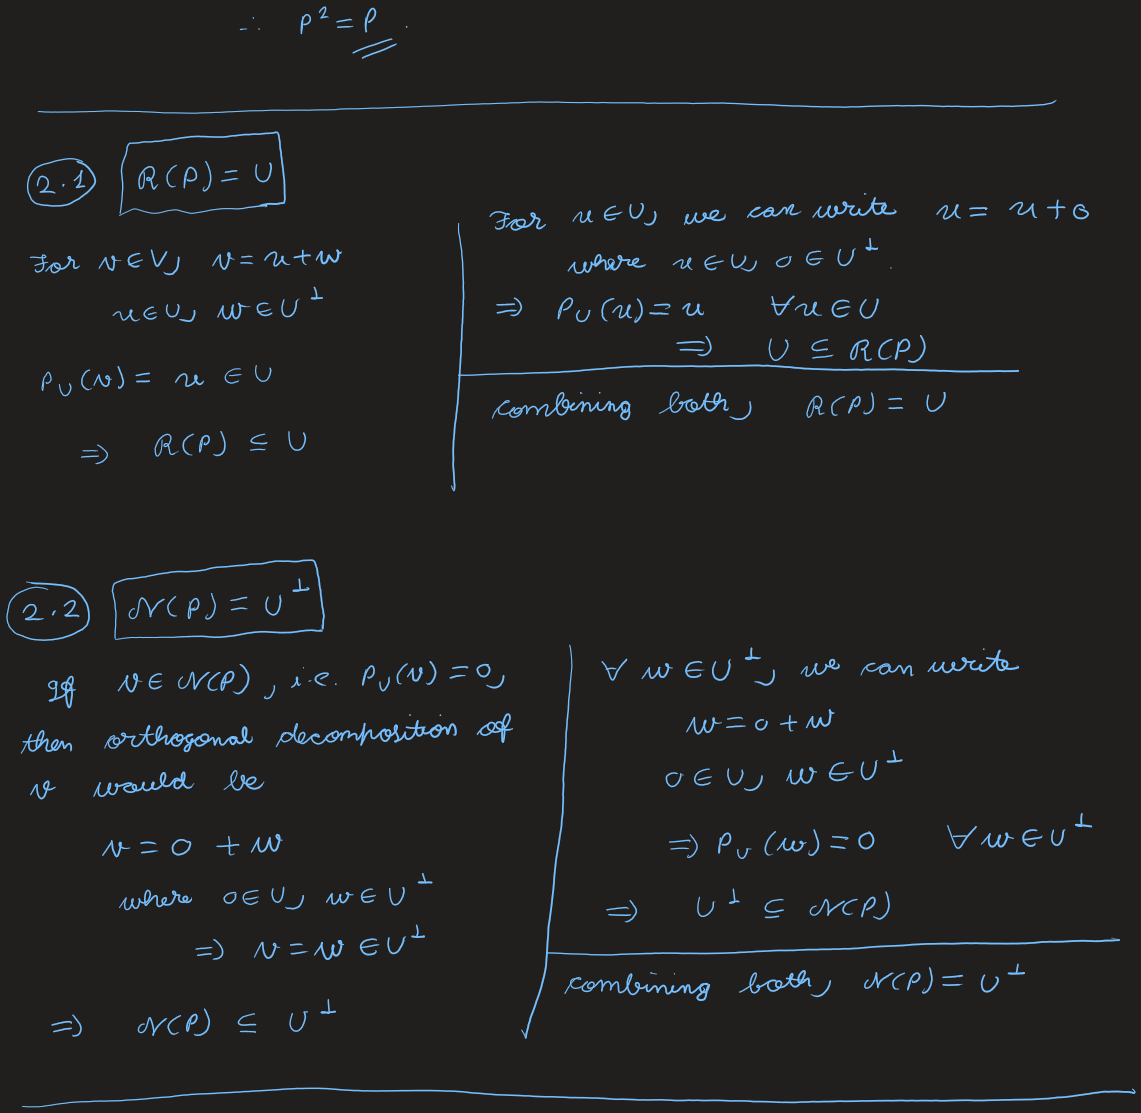 ∴ P² = P.
2.1 R(P) = U
For v ∈ V, v = u + w
u ∈ U, w ∈ U⊥
P_U(v) = u ∈ U
⇒ R(P) ⊆ U
For u ∈ U, we can write u = u + 0
where u ∈ U, 0 ∈ U⊥.
⇒ P_U(u) = u ∀ u ∈ U
⇒ U ⊆ R(P)
combining both, R(P) = U
2.2 N(P) = U⊥
If v ∈ N(P), i.e. P_U(v) = 0,
then orthogonal decomposition of
v would be
v = 0 + w
where 0 ∈ U, w ∈ U⊥
⇒ v = w ∈ U⊥
⇒ N(P) ⊆ U⊥
∀ w ∈ U⊥, we can write
w = 0 + w
0 ∈ U, w ∈ U⊥
⇒ P_U(w) = 0 ∀ w ∈ U⊥
⇒ U⊥ ⊆ N(P)
combining both, N(P) = U⊥